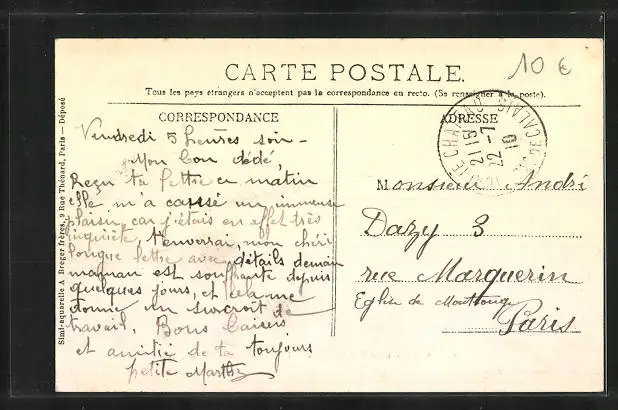 CARTE POSTALE.
10 €
Tous les pays étrangers n'acceptent pas la correspondance au recto. (Se renseigner à la poste).
CORRESPONDANCE
Vendredi 5 heures soir -
Mon bon dédé,
Reçu ta lettre ce matin
elle m'a caussé un immense
plaisir, car j'étais en effet très
inquiète, t'enverrai, mon chéri
longue lettre avec détails demain
maman est souffrante depuis
quelques jours, et cela me
donne un surcroit de
travail, Bons baisers
et amitié de ta toujours
petite Marthe
ADRESSE
PAS-DE-CALAIS
21 15
22 -7
10
Monsieur André
Dazy 3
rue Marguerin
Eglise de Montrouge
Paris
Simi-aquarelle A Breger frères, 9 Rue Thénard, Paris — Déposé